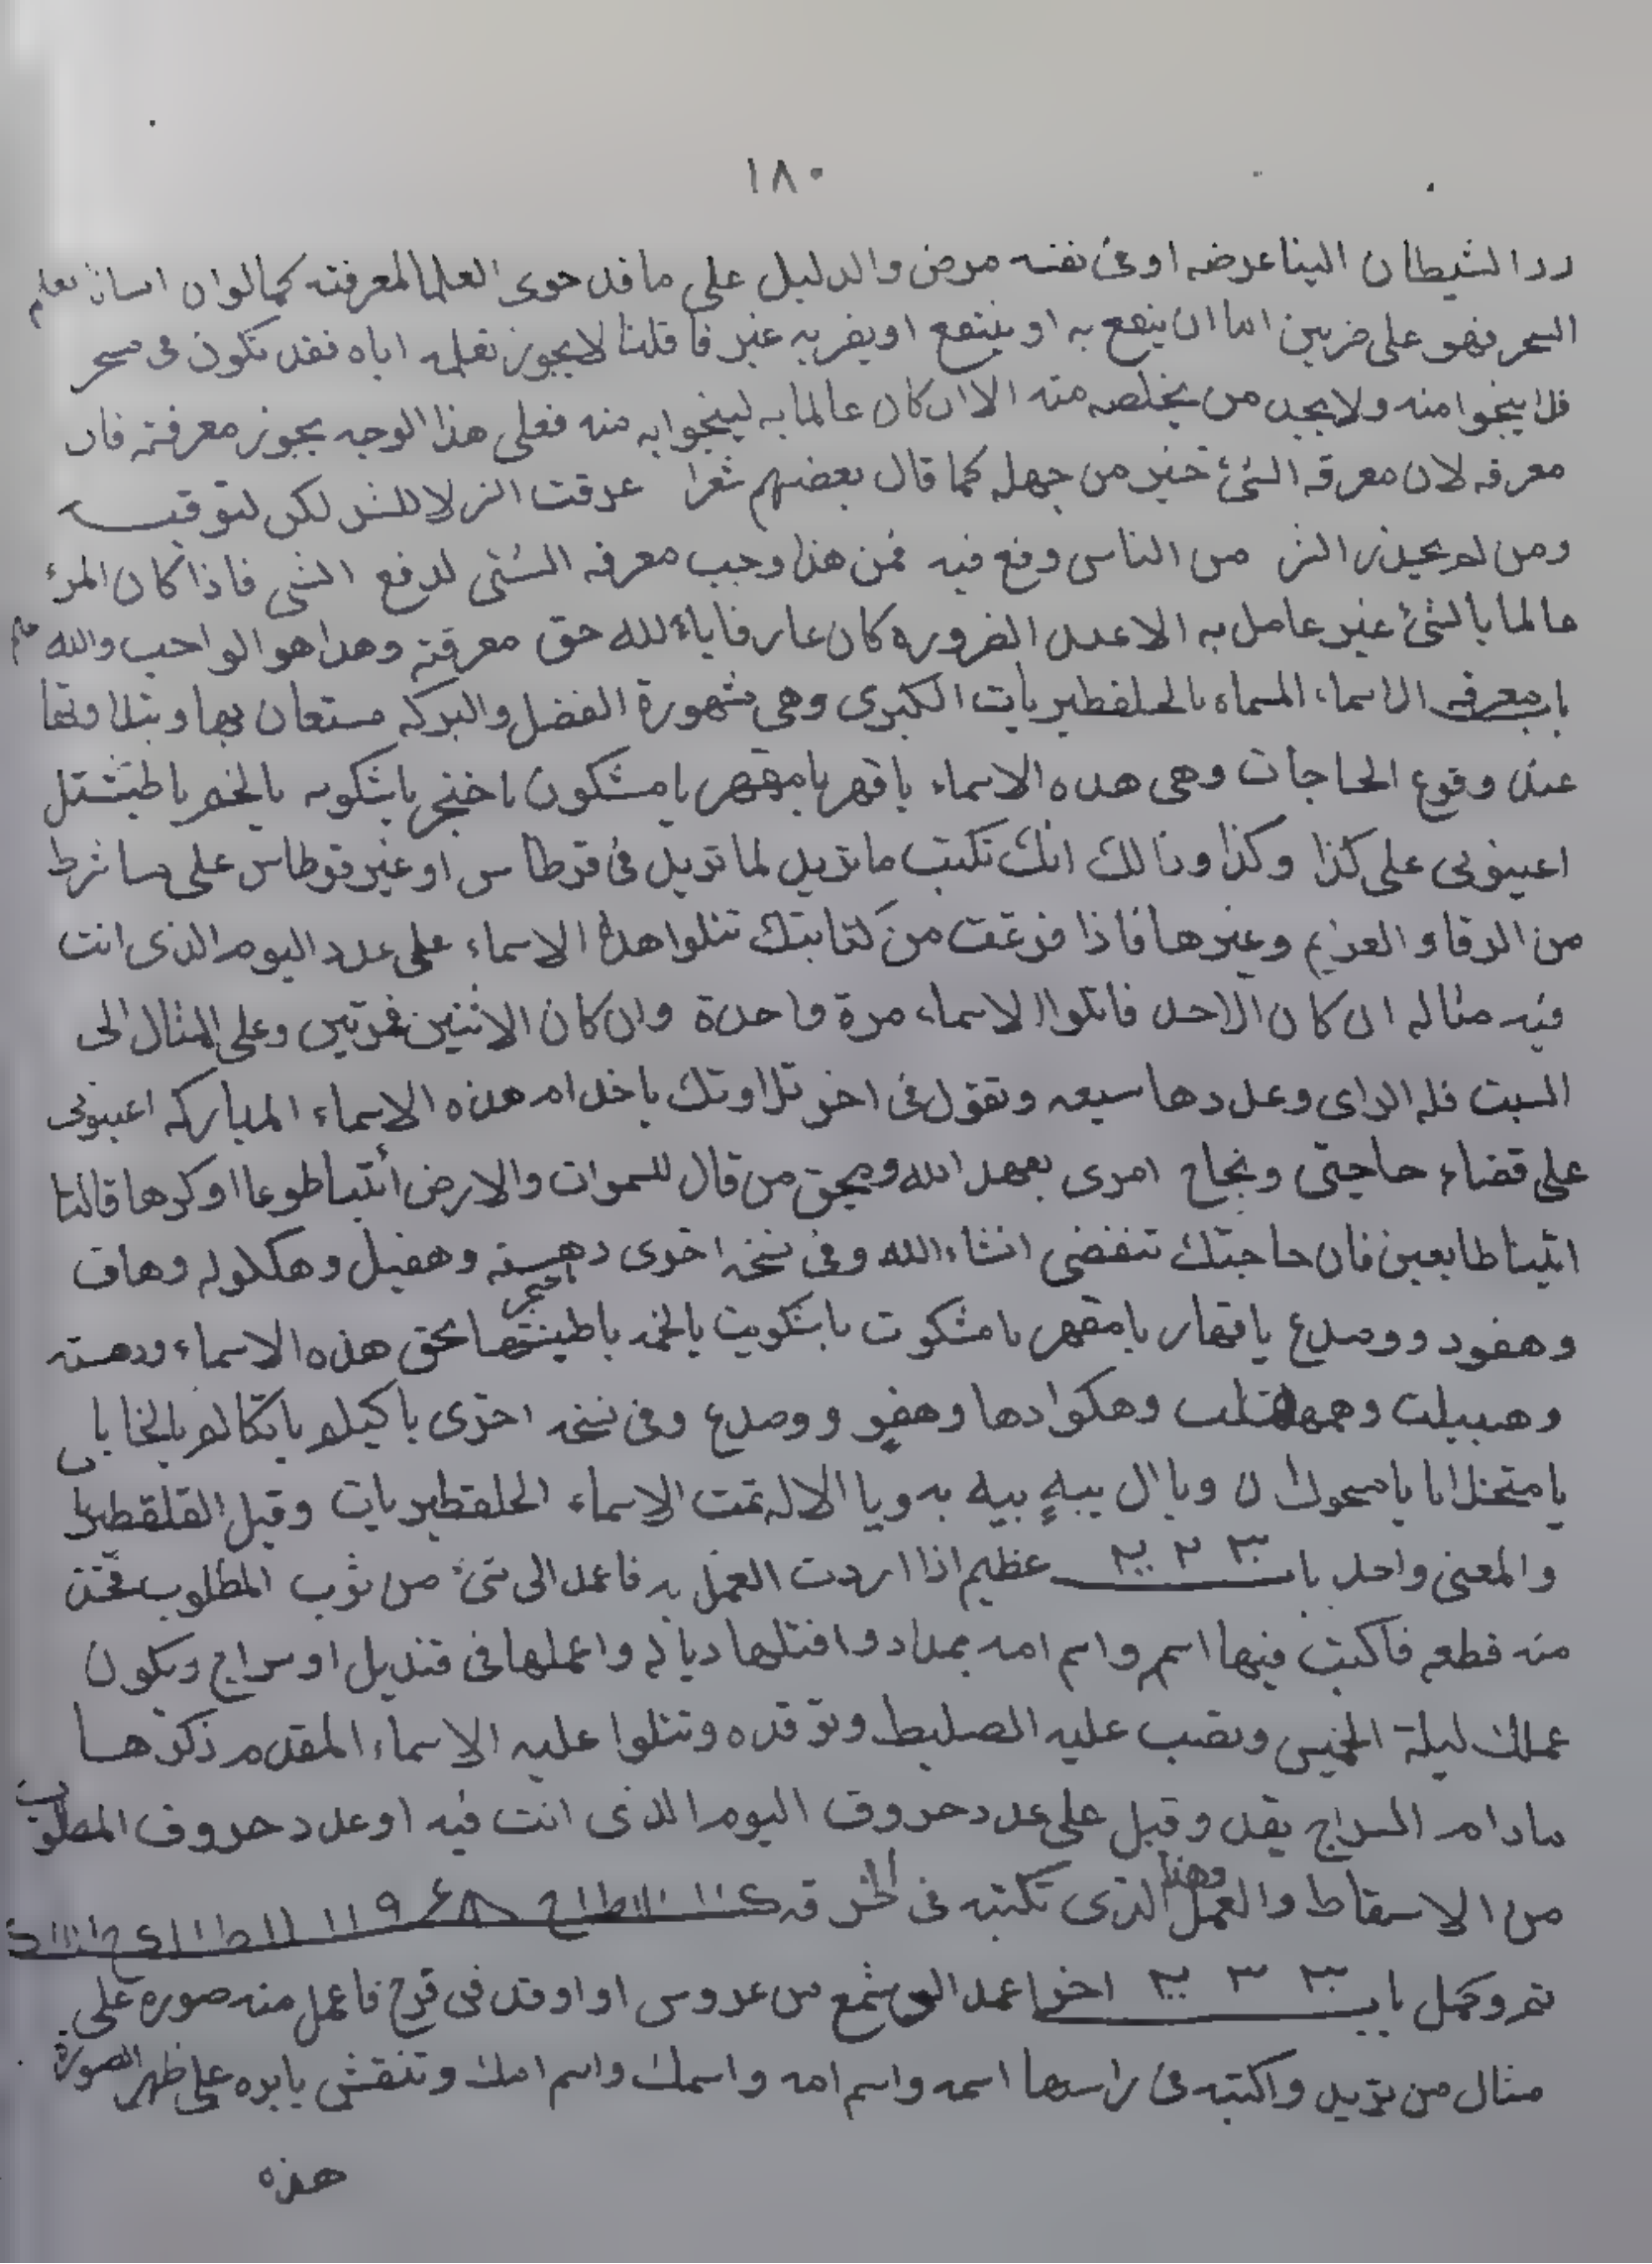 ١٨٠
ردا لشيطان الينا عرضه او فى نفسه مرض والدليل على ما قد حوى العلما لمعرفته كما لوان انسانا تعلم
السحر فهو على ضربين اما ان ينفع به او ينتفع او يضر به غير فا قلنا لا يجوز تعلمه اياه فقد تكون فى سحر
فلا ينجوا منه ولا يجد من يخلصه منه الا ان كان عالما به لينجوا به منه فعلى هذا الوجه يجوز معرفته فان
معرفه لان معرفه الشئ خير من جهله كما قال بعضهم شعرا عرفت الشر لا للشر لكن لتوقيه
ومن لم يحذر الشر من الناس وقع فيه فمن هذا وجب معرفه الشئ لدفع الشى فاذا كان المرء
عالما بالشئ غير عامل به الا عند الضروره كان عارفا بالله حق معرفته وهذا هو الواجب والله
باب معرفه الاسماء المسماه بالحلقطيريات الكبرى وهى مشهورة الفضل والبركه مستعان بها وبتلاوتها
عند وقوع الحاجات وهى هذه الاسماء ياقهر يا مقهر يا مشكون يا خنجر يا شكويه يالخم يا طيشتل
اعينونى على كذا وكذا وذالك انك تكتب ما تريد لما تريد فى قرطاس او غير قرطاس على سا نرط
من الرقا والعزايم وغيرها فاذا فرغت من كتابتك تتلوا هذه الاسماء على عدد اليوم الذى انت
فيه مثاله ان كان الاحد فاتلوا الاسماء مرة واحدة وان كان الاثنين فمرتين وعلى المثال الى
السبت فله الراى وعددها سبعه وتقول فى اخر تلاوتك يا خدام هذه الاسماء المباركه اعينونى
على قضاء حاجتى ونجاح امرى بعهد الله وبحق من قال للسموات والارض أئتيا طوعا اوكرها قالتا
اتينا طايعين فان حاجتك تنقضى انشاءالله وفى نسخه اخرى دهسته وهفيل وهكلوله وهاف
وهفود ووصدع ياقهار يا مقهر يا مشكوت يا شكويت يالخمد يا طينتها بحق هذه الاسماء ودهسته
وهبيلت وهكوادها وهفو ووصدع وفى نسخه اخرى يا كيلم يا تكالم يالخا يا
يا متخذانا ويا ال بيه بيه به ويا الاله تمت الاسماء الحلقطيريات وقيل القلقطيريا
والمعنى واحد باب ٣ ٢ ٣ عظيم اذا اردت العمل به فاعمد الى شئ من ثوب المطلوب فخذ
منه قطعه فاكتب فيها اسم واسم امه بمداد وافتلها ديا له واعملها فى قنديل او سراج ويكون
عملك ليلة الخميس وتصب عليه الصليط وتوقده وتتلوا عليه الاسماء المقدم ذكرها
مادام السراج يقد وقيل على عدد حروف اليوم الذى انت فيه او عدد حروف المطلوب
من الاسقاط والعمل وهذا الذى تكتبه فى الخرقه
تم وكمل باب ٣ ٣ ٣ اخر اعمد الى شمع من عروس او اوقد فى قرح فاعمل منه صوره على
مثال من تريد واكتبه فى راسها اسمه واسم امه واسمك واسم امك وتنقش بابره على ظهر الصورة
هذه